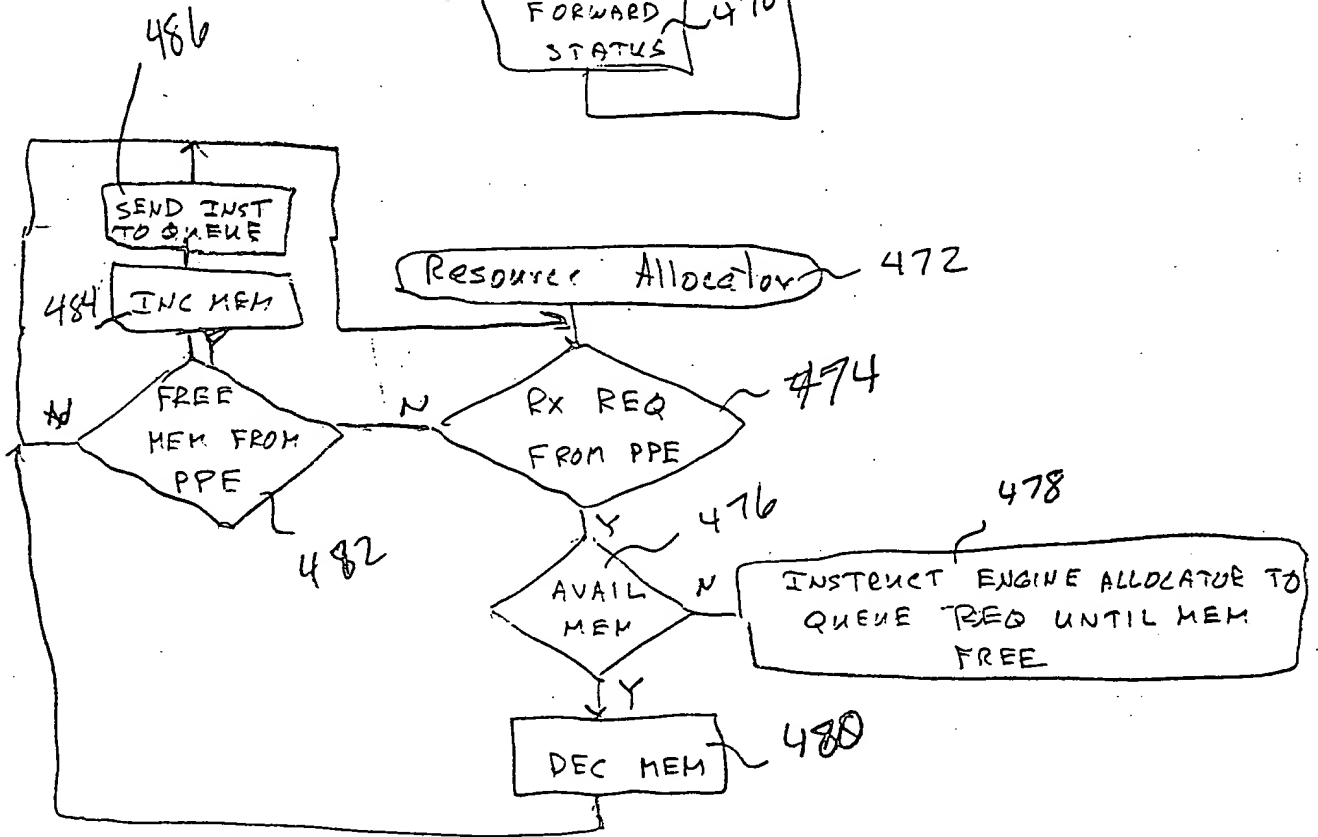 FORWARD
STATUS
486
SEND INST
TO QUEUE
484
INC MEM
Y
Resource Allocator
472
FREE
MEM FROM
PPE
482
N
RX REQ
FROM PPE
474
Y
476
AVAIL
MEM
N
478
INSTRUCT ENGINE ALLOCATOR TO
QUEUE REQ UNTIL MEM
FREE
Y
DEC MEM
480